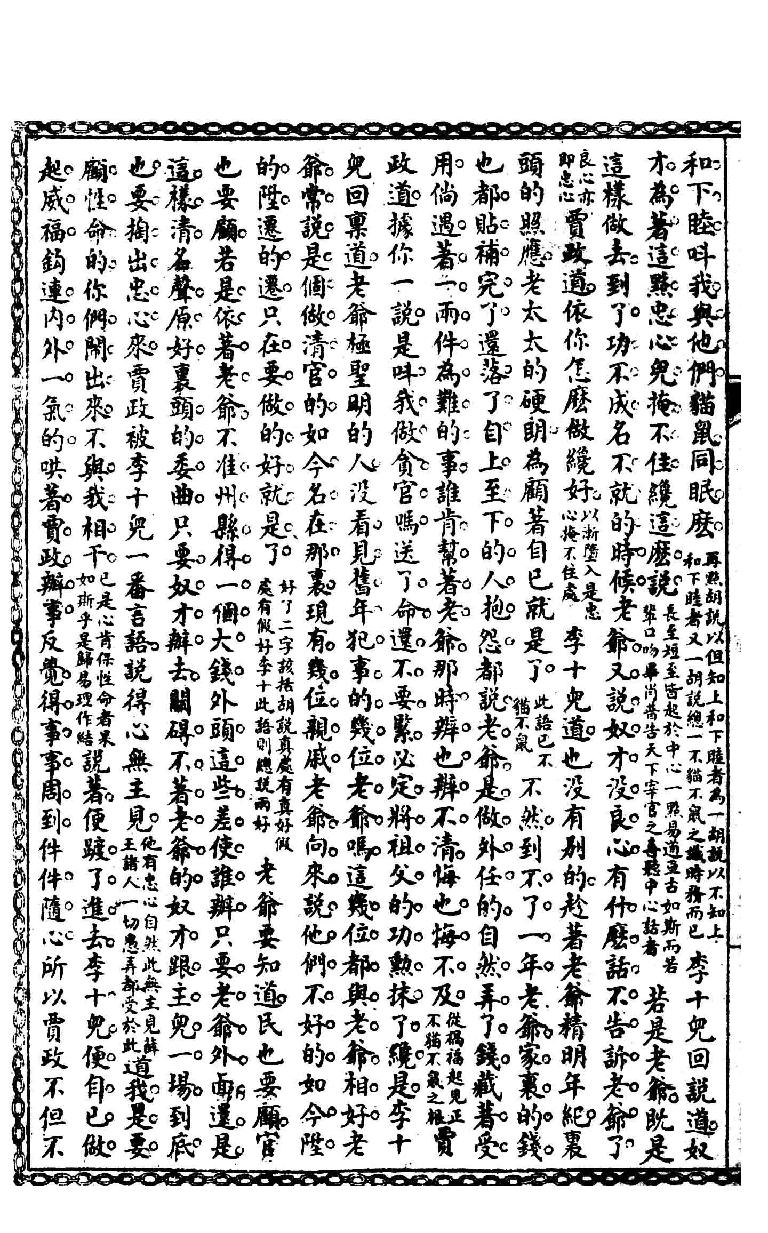 和下睦呌我與他們貓鼠同眠麽再點胡說以但知上和下睦者為一胡說以不知上和下睦者又一胡說總一不貓不鼠之識時務而已李十兒回說道奴
才為著這點忠心兒掩不住纔這麽說長至短至皆起於中心一點易道亘古如斯而若輩口吻畢肖普告天下宰官之專聽中心話者若是老爺旣是
這樣做去到了功不成名不就的時候老爺又說奴才没良心有什麽話不告訴老爺了
良心亦即忠心賈政道依你怎麽做纔好以漸墮入是忠心掩不住處李十兒道也没有别的趁著老爺精明年紀裏
頭的照應老太太的硬朗為顧著自已就是了此語已不貓不鼠不然到不了一年老爺家裏的錢
也都貼補完了還落了自上至下的人抱怨都說老爺是做外任的自然弄了錢藏著受
用倘遇著一兩件為難的事誰肯幫著老爺那時辦也辦不清悔也悔不及從禍福起見正不貓不鼠之根賈
政道據你一說是呌我做貪官嗎送了命還不要緊必定將祖父的功勲抹了纔是李十
兒回禀道老爺極聖明的人没看見舊年犯事的幾位老爺嗎這幾位都與老爺相好老
爺常說是個做清官的如今名在那裏現有幾位親戚老爺向來說他們不好的如今陞
的陞遷的遷只在要做的好就是了好了二字該括胡說真處有真好假處有假好李十此語則總說兩好老爺要知道民也要顧官
也要顧若是依著老爺不准州縣得一個大錢外頭這些差使誰辦只要老爺外面還是
這樣清名聲原好裏頭的委曲只要奴才辦去關碍不著老爺的奴才跟主兒一場到底
也要掏出忠心來賈政被李十兒一番言語說得心無主見他有忠心自然此無主見王諸人一切愚弄都受於此道我是要
顧性命的你們鬧出來不與我相干已是心肯保性命者果如斯乎是歸易理作結說著便踱了進去李十兒便自已做
起威福鈎連内外一氣的哄著賈政辦事反覺得事事周到件件隨心所以賈政不但不